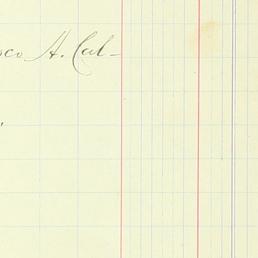 sco A. Cal-